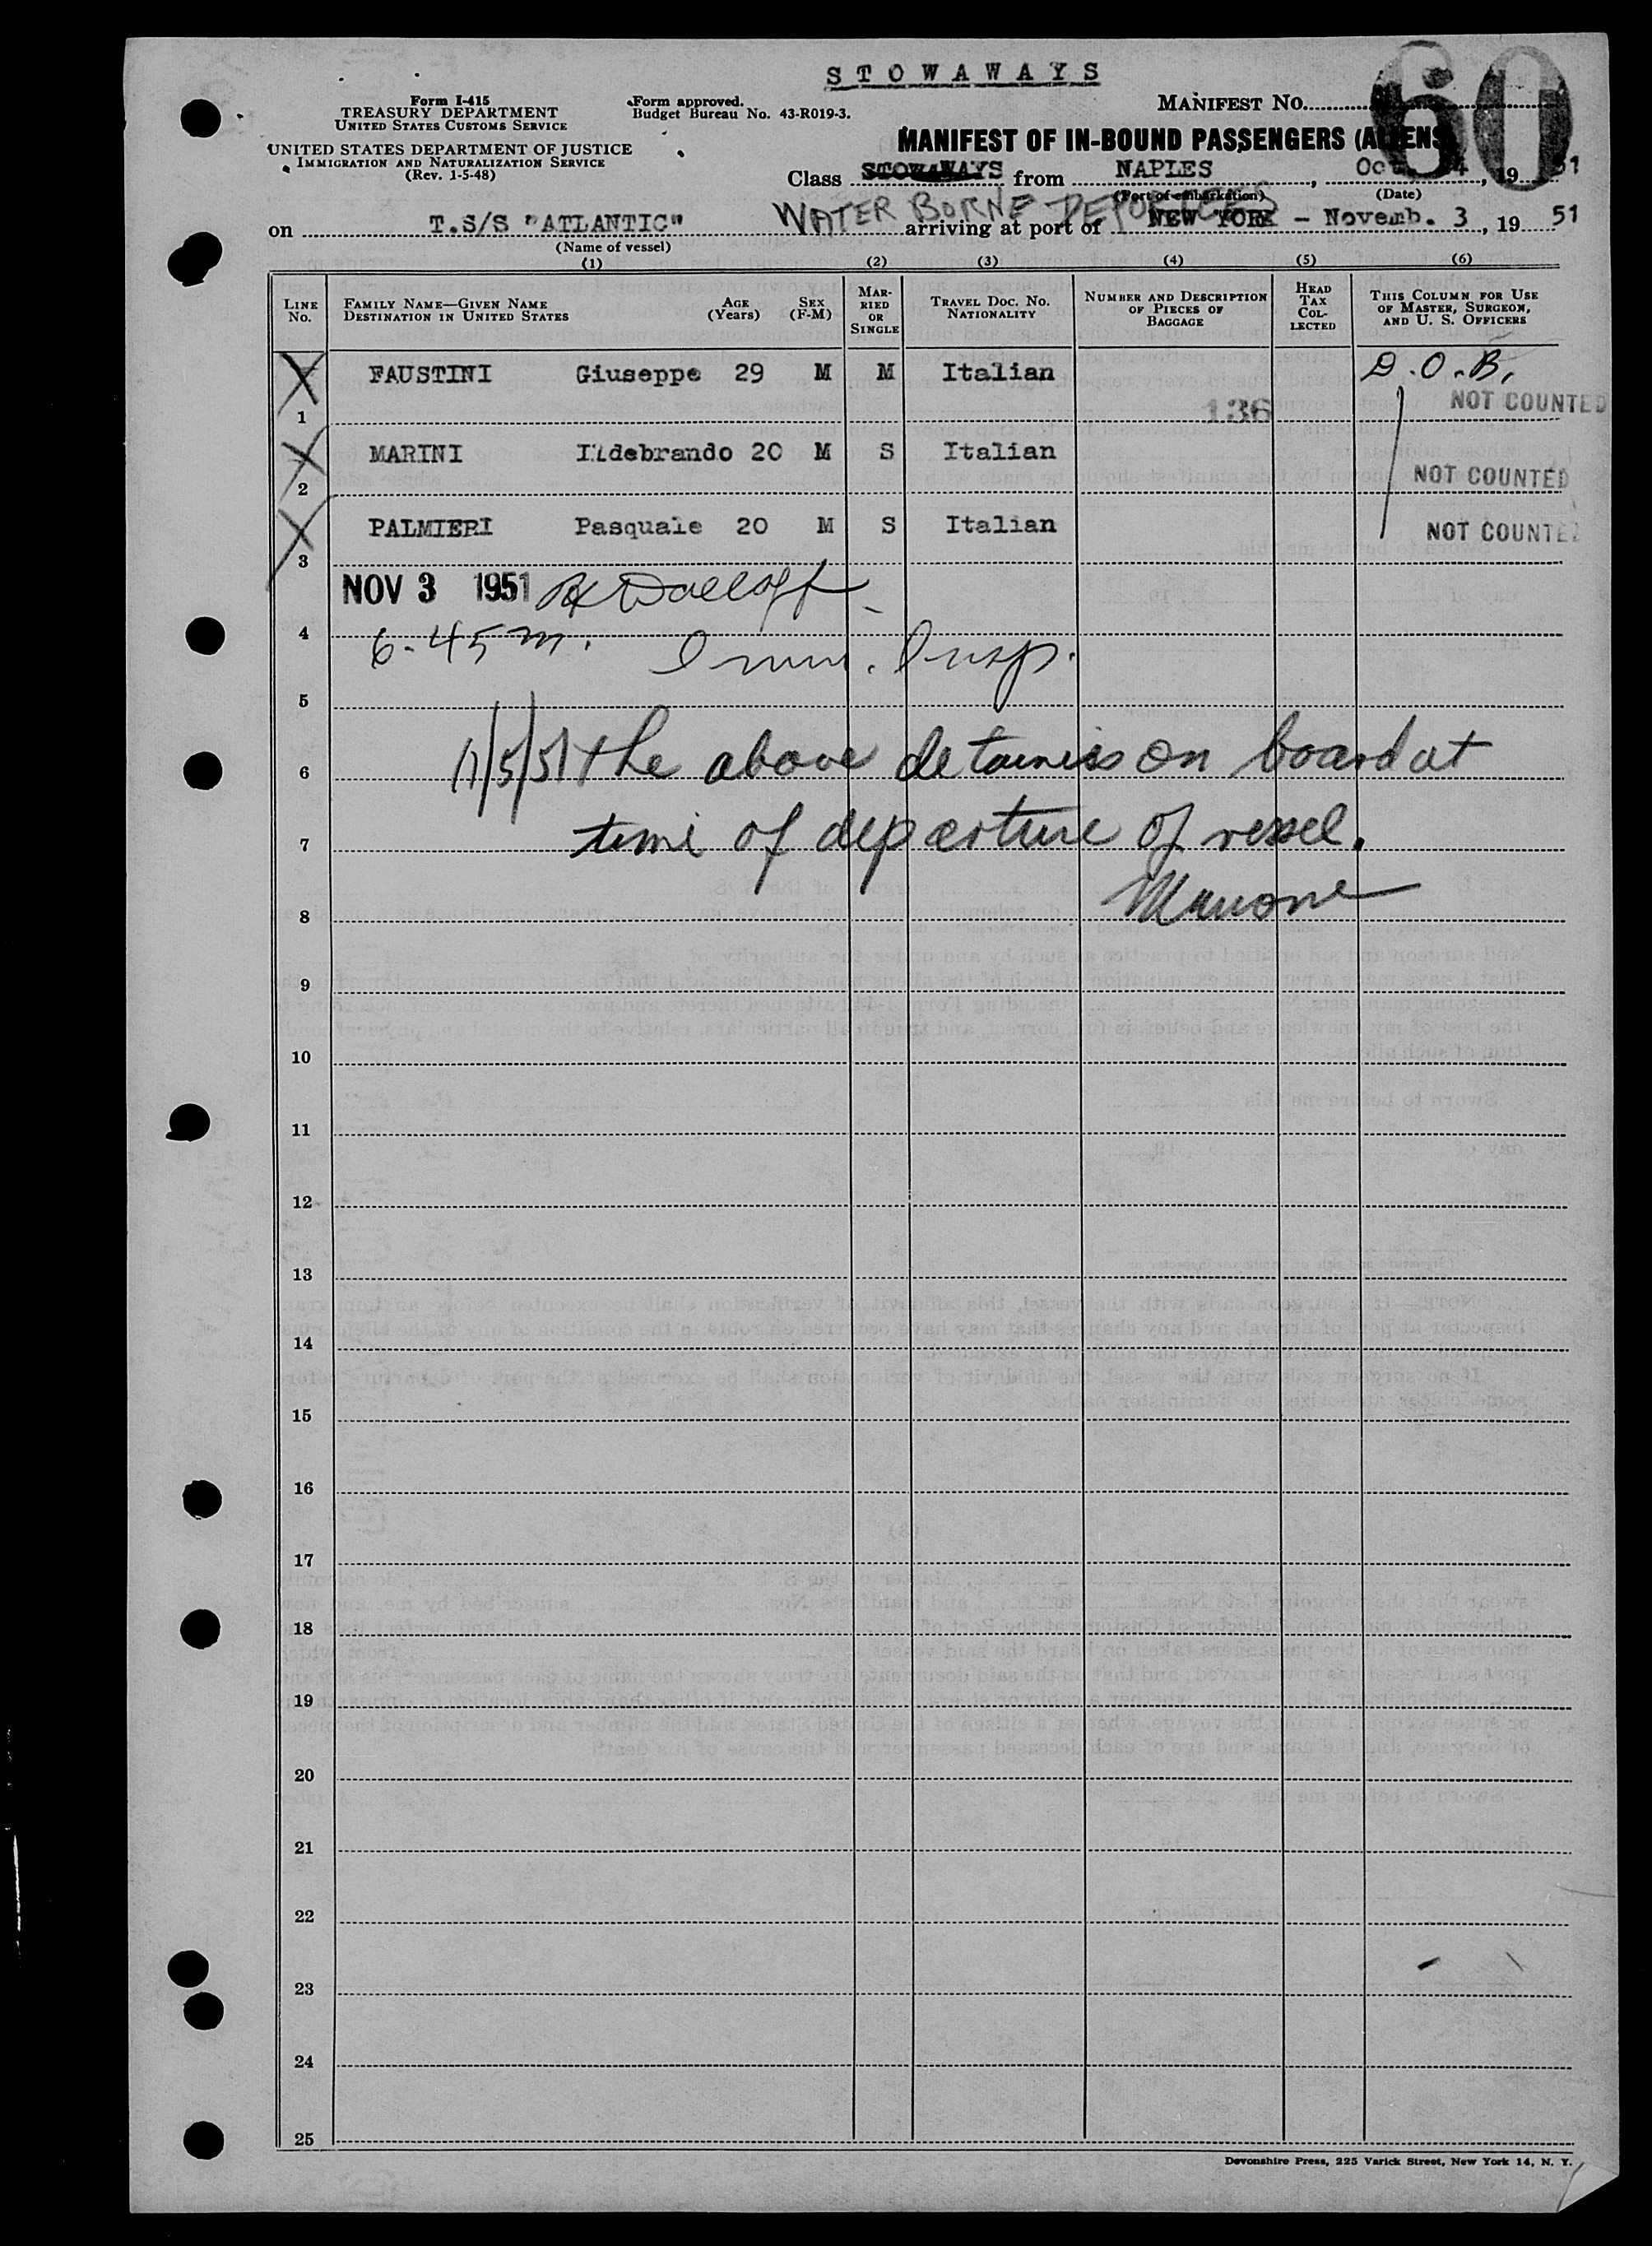 STOWAWAYS
60
Form I-415
TREASURY DEPARTMENT
UNITED STATES CUSTOMS SERVICE
UNITED STATES DEPARTMENT OF JUSTICE
IMMIGRATION AND NATURALIZATION SERVICE
(Rev. 1-5-48)
Form approved.
Budget Bureau No. 43-R019-3.
MANIFEST NO.
MANIFEST OF IN-BOUND PASSENGERS (ALIENS)
Class STOWAWAYS from NAPLES, Oct. 4, 1951
(Port of embarkation) (Date)
WATER BORNE DEPORTEES
on T.S/S "ATLANTIC" arriving at port of NEW YORK - Novemb. 3, 1951
(Name of vessel)
(1) (2) (3) (4) (5) (6)
LINE NO. FAMILY NAME—GIVEN NAME DESTINATION IN UNITED STATES AGE (Years) SEX (F-M) MARRIED OR SINGLE TRAVEL DOC. NO. NATIONALITY NUMBER AND DESCRIPTION OF PIECES OF BAGGAGE HEAD TAX COLLECTED THIS COLUMN FOR USE OF MASTER, SURGEON, AND U. S. OFFICERS
1 FAUSTINI Giuseppe 29 M M Italian 136 D.O.B. NOT COUNTED
2 MARINI Ildebrando 20 M S Italian NOT COUNTED
3 PALMIERI Pasquale 20 M S Italian NOT COUNTED
NOV 3 1951
4
6-45 m. Imm. Insp.
5
6 11/5/51 the above detainees on board at
7 time of departure of vessel.
8
9
10
11
12
13
14
15
16
17
18
19
20
21
22
23
24
25
Devonshire Press, 225 Varick Street, New York 14, N. Y.